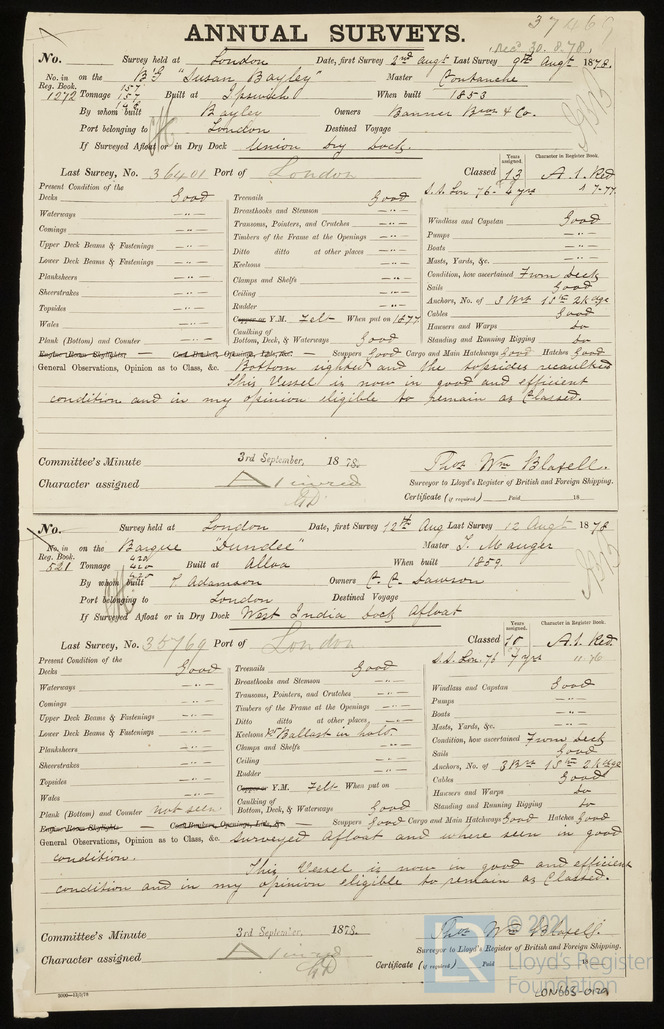 37469
ANNUAL SURVEYS.
Rec'd 30.8.78.
No. Survey held at London Date, first Survey 2nd Augt Last Survey 9th Augt 1878.
No. in on the Bg "Susan Bayley" Master
Reg. Book. 157
1272 Tonnage 157 Built at Ipswich When built 1853
By whom built Bayley Owners Banner Bros & Co.
Port belonging to London Destined Voyage
If Surveyed Afloat or in Dry Dock Union Dry Dock.
Last Survey, No. 36401 Port of London Classed Years assigned. 13 Character in Register Book. A.1. Red
S.S. Lon 76 - 4 yrs 7-77
Present Condition of the
Decks Good
Waterways -"-
Comings -"-
Upper Deck Beams & Fastenings -"-
Lower Deck Beams & Fastenings -"-
Planksheers -"-
Sheerstrakes -"-
Topsides -"-
Wales -"-
Plank (Bottom) and Counter -"-
Treenails Good
Breasthooks and Stemson -"-
Transoms, Pointers, and Crutches -"-
Timbers of the Frame at the Openings -"-
Ditto ditto at other places -"-
Keelsons -"-
Clamps and Shelfs -"-
Ceiling -"-
Rudder -"-
Copper or Y.M. Felt When put on 1877
Caulking of
Bottom, Deck, & Waterways Good
Windlass and Capstan Good
Pumps -"-
Boats -"-
Masts, Yards, &c. -"-
Condition, how ascertained From Deck
Sails Good
Anchors, No. of 3 Brs 1 St 2 Kedge
Cables Good
Hawsers and Warps Do
Standing and Running Rigging Do
Scuppers Good Cargo and Main Hatchways Good Hatches Good
General Observations, Opinion as to Class, &c. Bottom sighted and the topsides recaulked
This Vessel is now in good and efficient
condition and in my opinion eligible to remain as Classed.
Committee's Minute 3rd September, 1878.
Character assigned A 1 in red
Thos Wm Blaxell.
Surveyor to Lloyd's Register of British and Foreign Shipping.
Certificate (if required) Paid 18
No. Survey held at London Date, first Survey 12th Aug Last Survey 12 Augt 1878
No. in on the Barque "Dundee" Master J. Mauger
Reg. Book. 420
521 Tonnage 420 Built at Alloa When built 1859.
By whom built T Adamson Owners C. C. Dawson
Port belonging to London Destined Voyage
If Surveyed Afloat or in Dry Dock West India Dock Afloat
Last Survey, No. 35769 Port of London Classed Years assigned. 10 Character in Register Book. A.1. Red.
S.S. Lon 76 7 yrs 11.76
Present Condition of the
Decks Good
Waterways -"-
Comings -"-
Upper Deck Beams & Fastenings -"-
Lower Deck Beams & Fastenings -"-
Planksheers -"-
Sheerstrakes -"-
Topsides -"-
Wales -"-
Plank (Bottom) and Counter not seen
Treenails Good
Breasthooks and Stemson -"-
Transoms, Pointers, and Crutches -"-
Timbers of the Frame at the Openings -"-
Ditto ditto at other places, -"-
Keelsons Ballast in hold
Clamps and Shelfs -"-
Ceiling -"-
Rudder -"-
Copper or Y.M. Felt When put on
Caulking of
Bottom, Deck, & Waterways Good
Windlass and Capstan Good
Pumps -"-
Boats -"-
Masts, Yards, &c. -"-
Condition, how ascertained From Deck
Sails Good
Anchors, No. of 3 Brs 1 St 2 Kedge
Cables Good
Hawsers and Warps Do
Standing and Running Rigging Do
Scuppers Good Cargo and Main Hatchways Good Hatches Good
General Observations, Opinion as to Class, &c. Surveyed Afloat and where seen in good
condition.
This Vessel is now in good and efficient
condition and in my opinion eligible to remain as Classed.
Committee's Minute 3rd September, 1878.
Character assigned A 1 in red
Thos Wm Blaxell.
Surveyor to Lloyd's Register of British and Foreign Shipping.
Certificate (if required) Paid 18
LON663-0129
© 2021
LR Lloyd's Register
Foundation